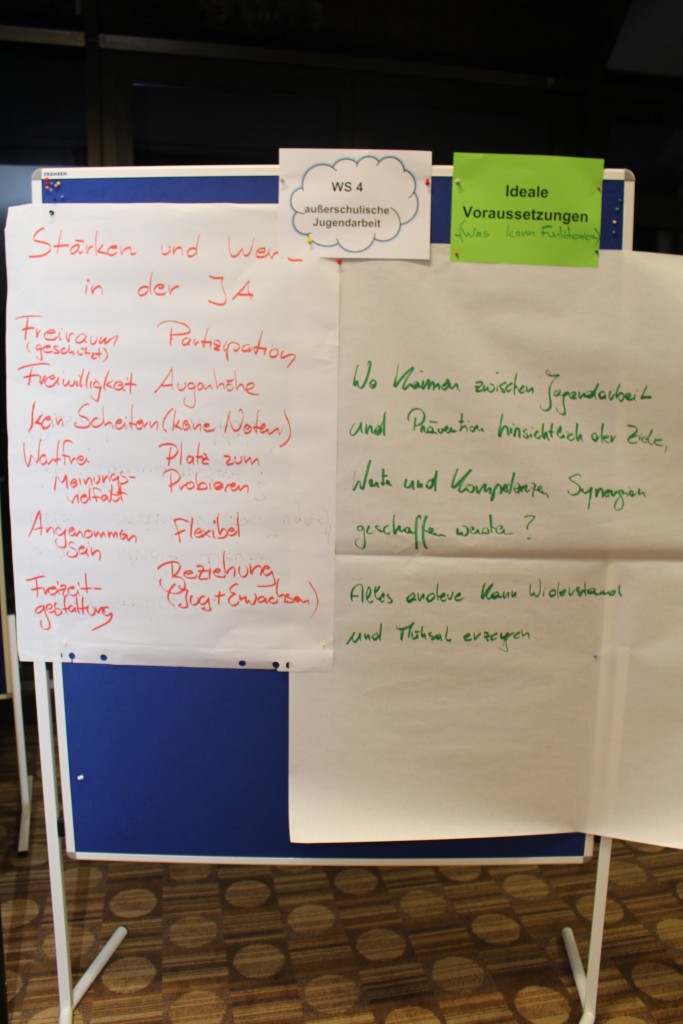 FRANKEN
WS 4
außerschulische
Jugendarbeit
Ideale
Voraussetzungen
(Was kann Funktionieren)
Stärken und
in der JA
Freiraum
(geschützt)
Partizipation
Freiwilligkeit
Augenhöhe
kein Scheitern (keine Noten)
Wertfrei
Meinungs-
vielfalt
Platz zum
Probieren
Angenommen
sein
Flexibel
Freizeit-
gestaltung
Beziehung
(Jug + Erwachsen)
Wo können zwischen Jugendarbeit
und Prävention hinsichtlich der Ziele,
Werte und Kompetenzen Synergien
geschaffen werden?
Alles andere kann Widerstand
und Mühsal erzeugen